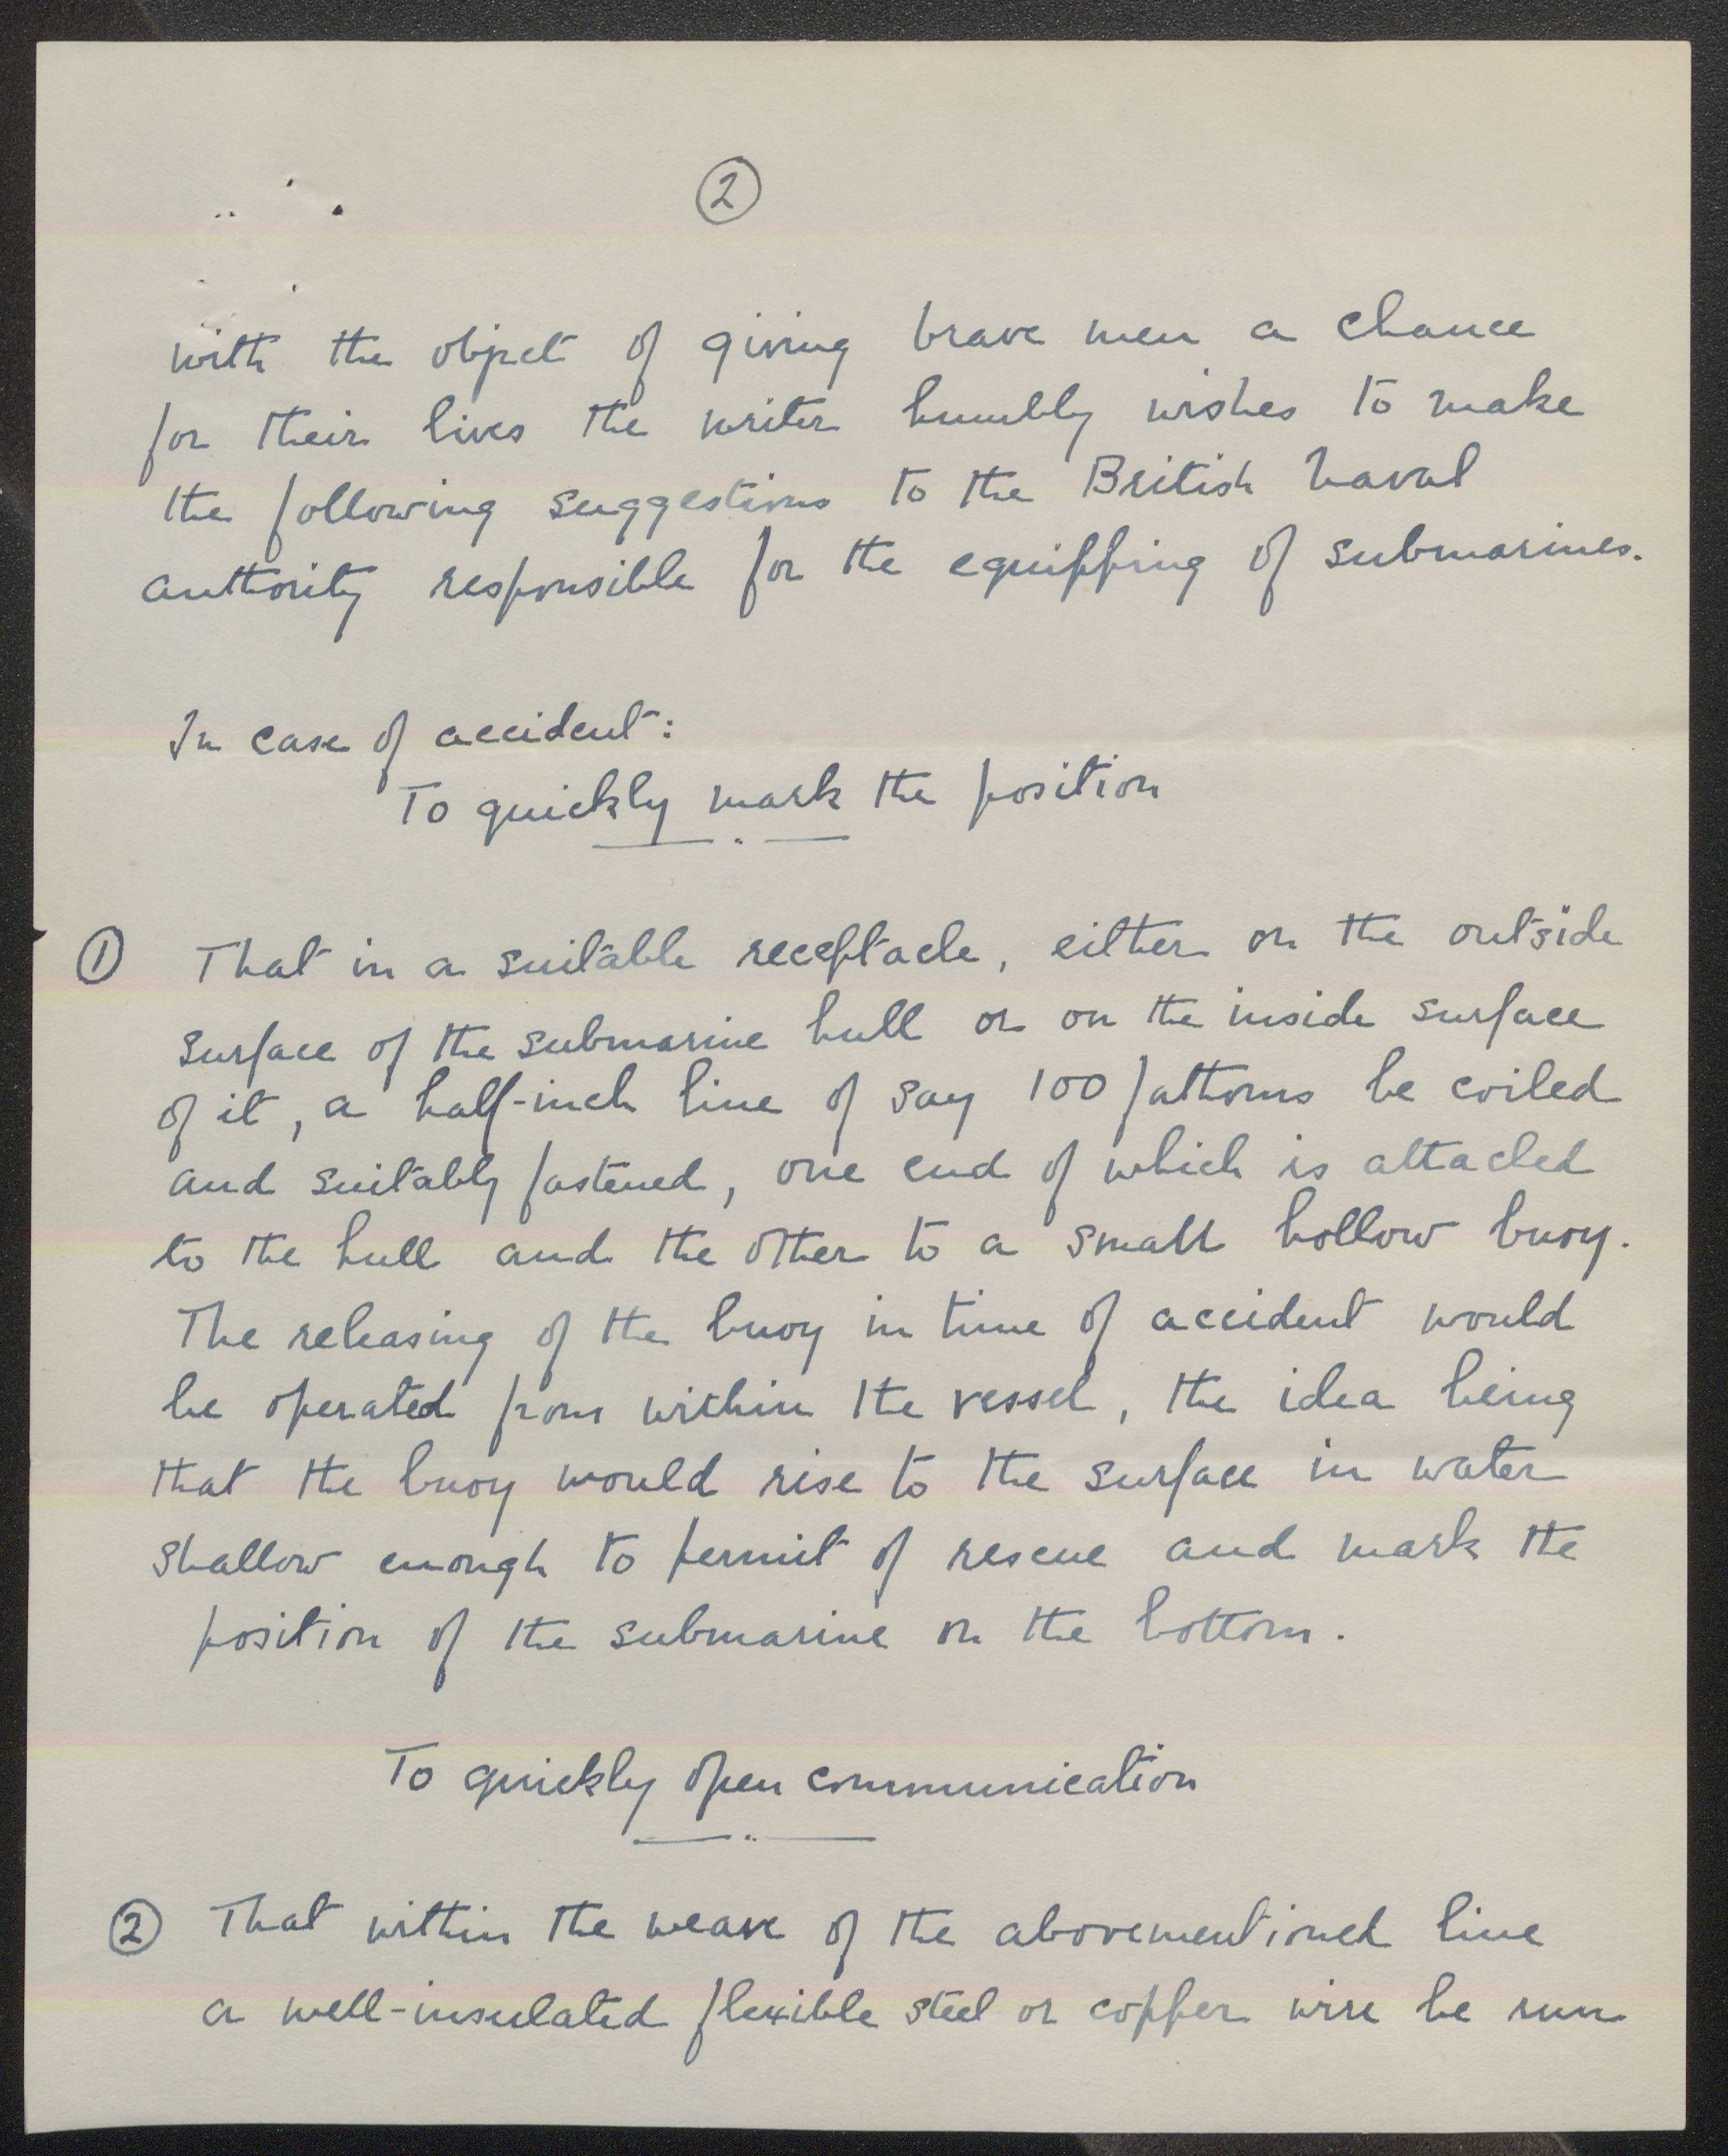 2
with the object of giving brave men a chance
for their lives the writer humbly wishes to make
the following suggestions to the British Naval
authority responsible for the equipping of submarines.
In case of accident:
To quickly mark the position
① That in a suitable receptacle, either on the outside
surface of the submarine hull or on the inside surface
of it, a half-inch line of say 100 fathoms be coiled
and suitably fastened, one end of which is attached
to the hull and the other to a small hollow buoy.
The releasing of the buoy in time of accident would
be operated from within the vessel, the idea being
that the buoy would rise to the surface in water
shallow enough to permit of rescue and mark the
position of the submarine on the bottom.
To quickly open communication
② That within the weave of the abovementioned line
a well-insulated flexible steel or copper wire be run